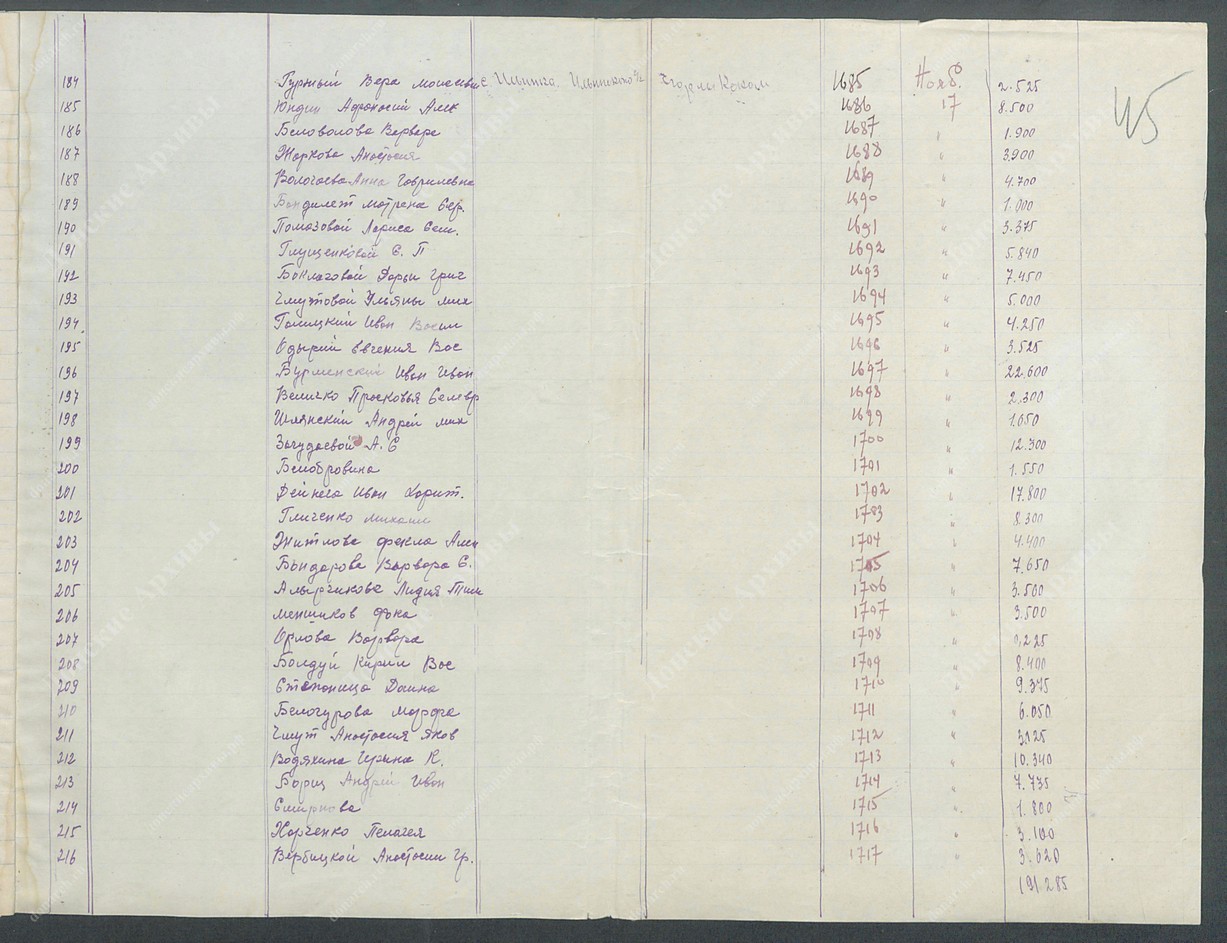 45
184 Гуржый Вера Моисеевн с. Ильинка. Ильинского 1685 Нояб. 2.525
185 Юндин Афонасий Алек 1686 17 8.500
186 Беловолова Варвара 1687 " 1.900
187 Жаркова Анастасия 1688 " 3.900
188 Вологаева Анна Гаврилевна 1689 " 4.700
189 Бондилет Мотрена Сер. 1690 " 1.000
190 Помозовой Лариса Сем. 1691 " 3.375
191 Глущенковой Е. П 1692 " 5.840
192 Боклаговой Дарьи Григ 1693 " 7.450
193 Чмутовой Ульяны Мих 1694 " 5.000
194 Голицкий Иван Васил 1695 " 4.250
195 Одырий Евгения Вас 1696 " 3.525
196 Бурменский Иван Иван 1697 " 22.600
197 Величко Просковья Селевр 1698 " 2.300
198 Шлянский Андрей Мих 1699 " 1.050
199 Зачудаевой А. Е 1700 " 12.300
200 Белобровина 1701 " 1.550
201 Дейнега Иван Харит. 1702 " 17.800
202 Гличенко Михаил 1703 " 8.300
203 Житлова Фекла Алек 1704 " 4.400
204 Бондарова Варвара Е. 1705 " 7.650
205 Алырчикова Лидия Тим 1706 " 3.500
206 Меншиков Фока 1707 " 3.500
207 Орлова Варвара 1708 " 225
208 Болдуй Кирил Вас 1709 " 8.400
209 Степоница Даина 1710 " 9.375
210 Белогурова Марфа 1711 " 6.050
211 Чмут Анастасия Яков 1712 " 3.125
212 Водяхина Ирына К. 1713 " 10.340
213 Борщ Андрей Иван 1714 " 7.735
214 Смирнова 1715 " 1.800
215 Харченко Пелагея 1716 " 3.100
216 Вербицкой Анастасии Гр. 1717 " 3.020
191.285